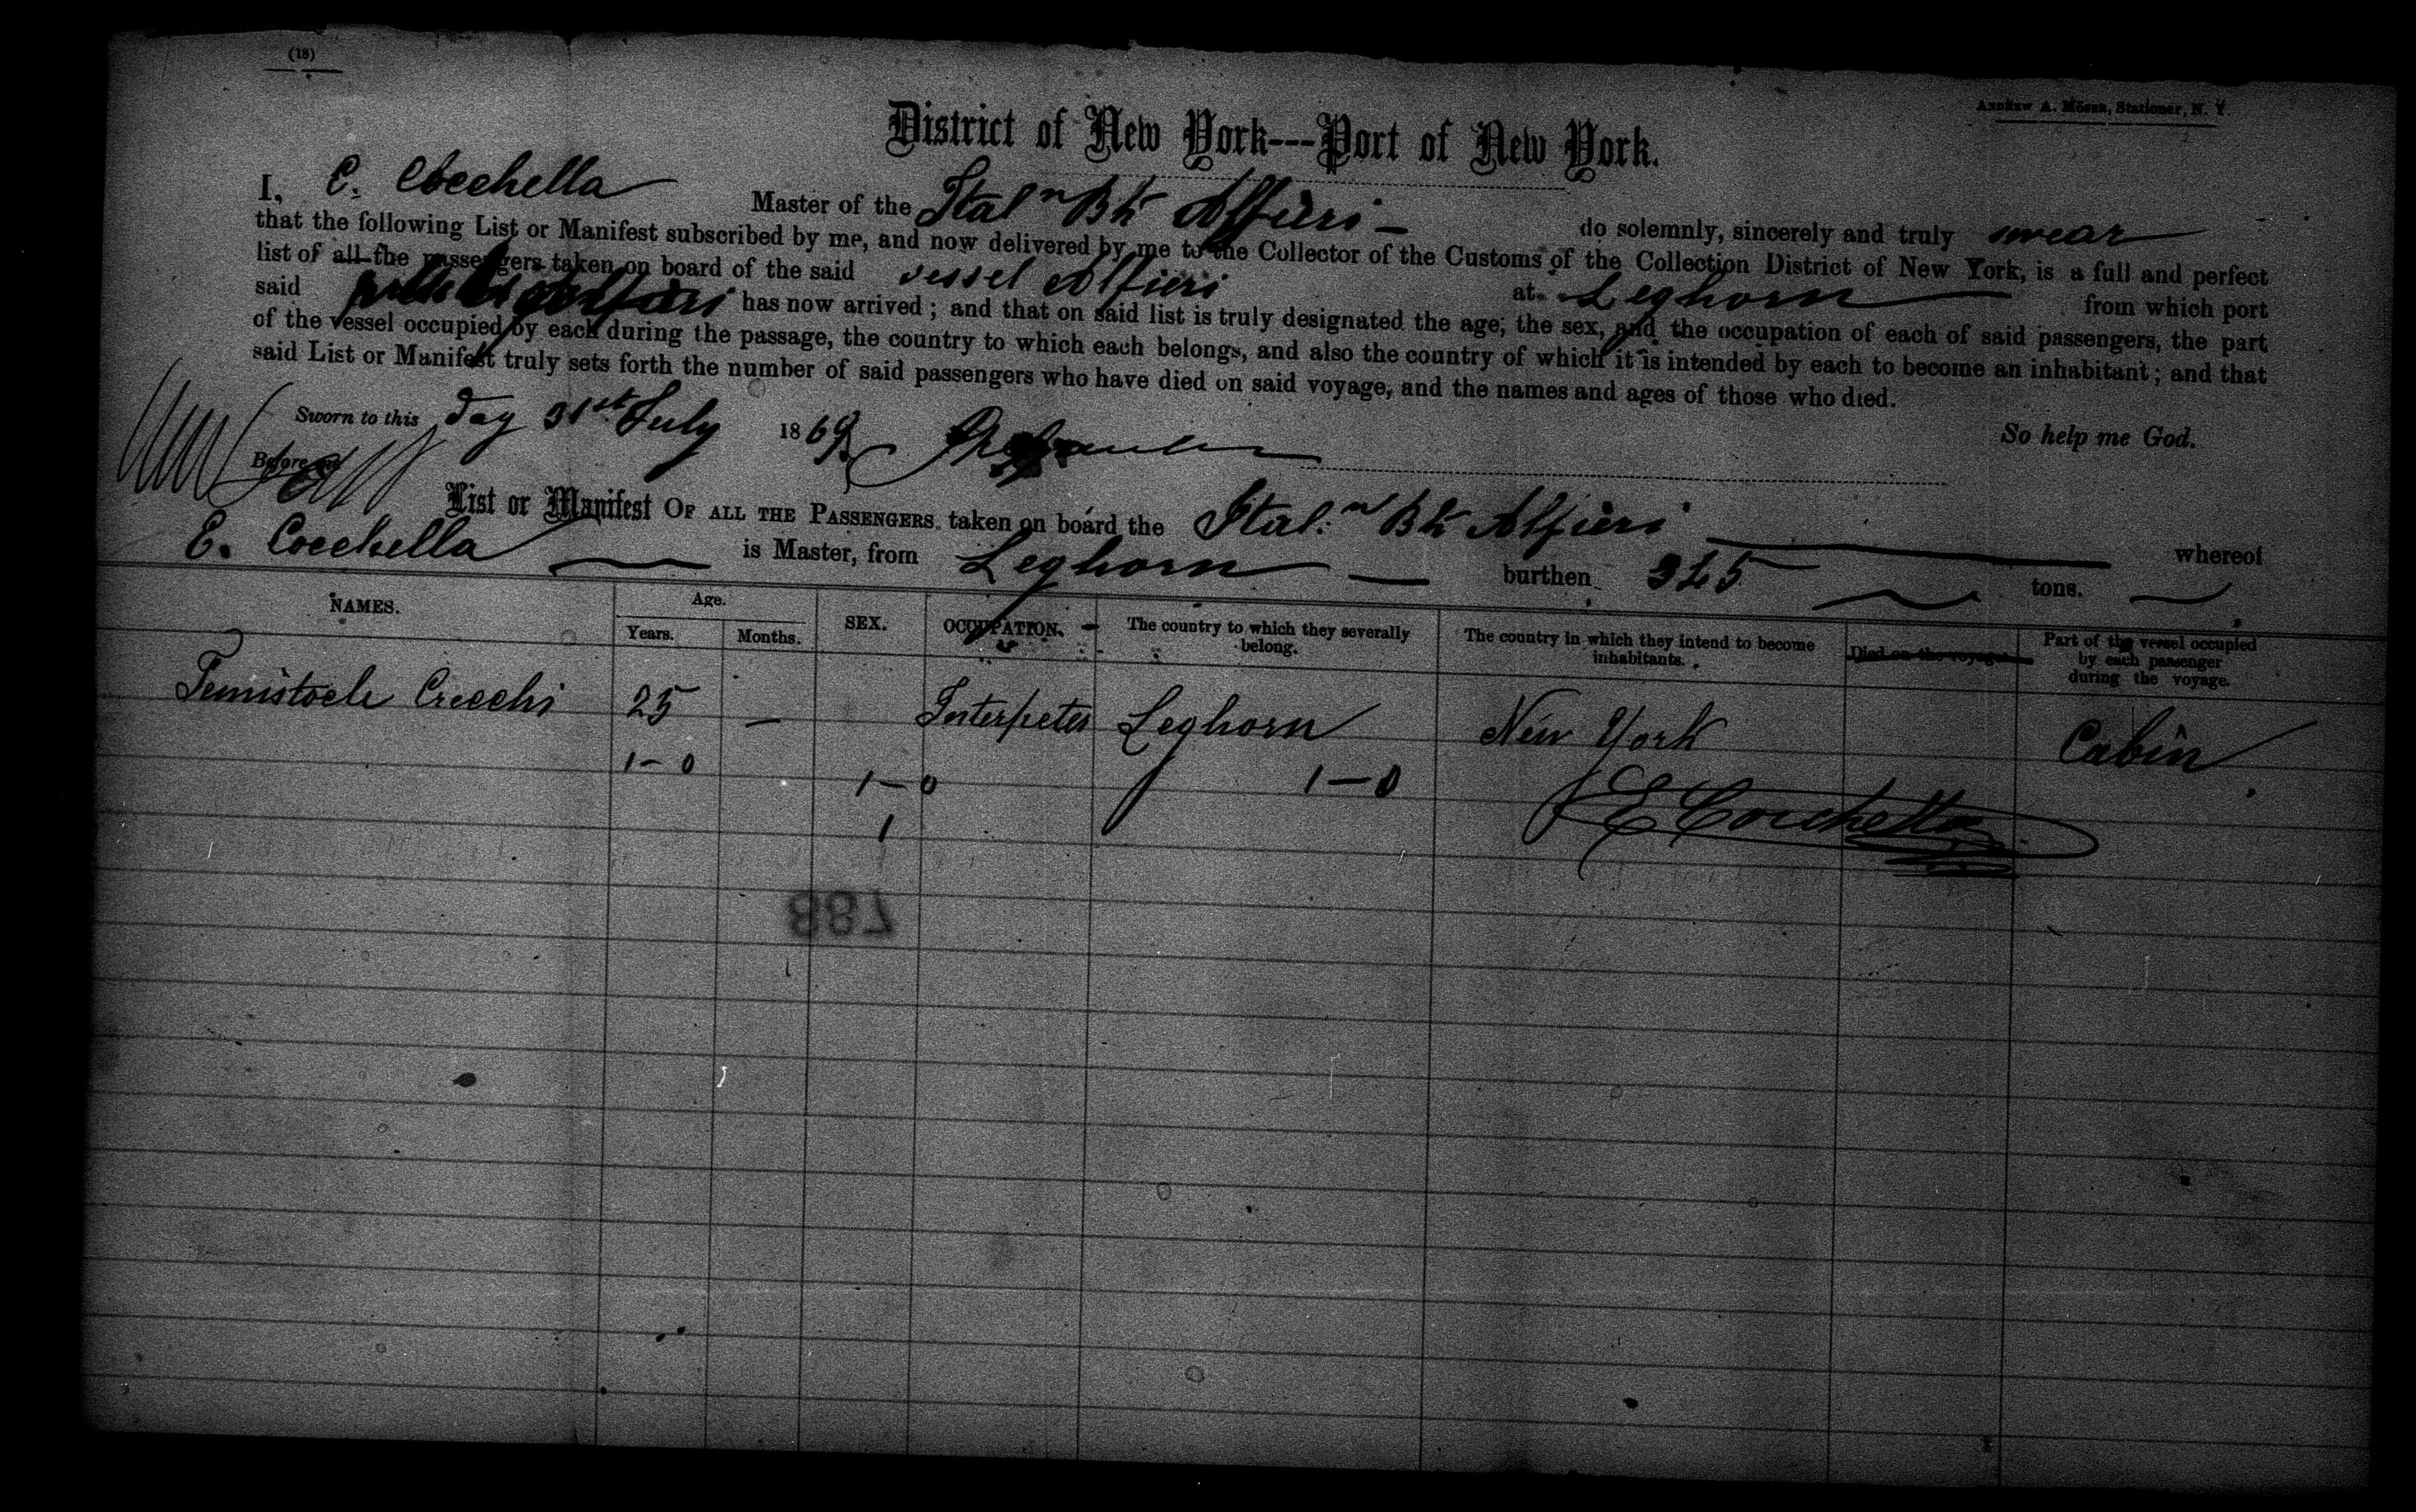 (18)
Andrew A. Moser, Stationer, N. Y.
District of New York---Port of New York.
I, C. Cocchella Master of the Ital.n Bk Alfieri — do solemnly, sincerely and truly swear
that the following List or Manifest subscribed by me, and now delivered by me to the Collector of the Customs of the Collection District of New York, is a full and perfect
list of all the passengers taken on board of the said vessel Alfieri at Leghorn from which port
said Alfieri has now arrived; and that on said list is truly designated the age, the sex, and the occupation of each of said passengers, the part
of the vessel occupied by each during the passage, the country to which each belongs, and also the country of which it is intended by each to become an inhabitant; and that
said List or Manifest truly sets forth the number of said passengers who have died on said voyage, and the names and ages of those who died.
So help me God.
Sworn to this day 31st July 1869.
Before me
List or Manifest OF ALL THE PASSENGERS taken on board the Ital.n Bk Alfieri whereof
E. Cocchella is Master, from Leghorn — burthen 345 tons.
NAMES. Age. Years. Months. SEX. OCCUPATION. The country to which they severally belong. The country in which they intend to become inhabitants. Died on the voyage. Part of the vessel occupied by each passenger during the voyage.
Temistocle Crecchi 25 — Interpeter Leghorn New York Cabin
1-0 1-0 1-0
E Cocchella
1
788